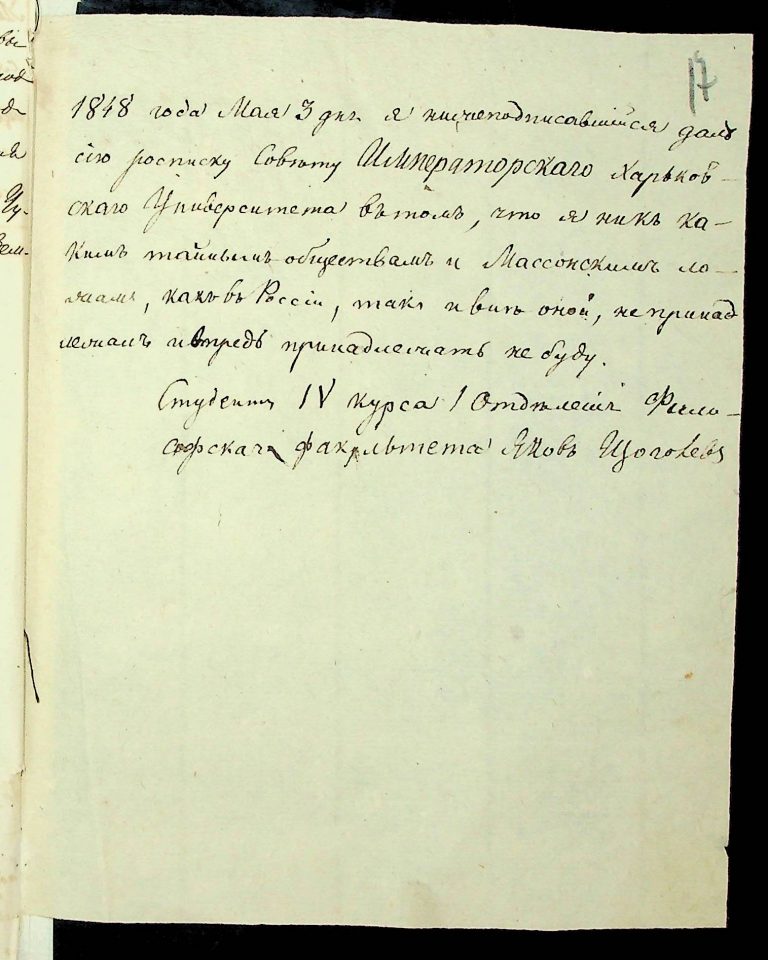 17
1848 года Мая 3 дня я нижеподписавшийся далъ
сію росписку Совѣту Императорскаго Харьков-
скаго Университета въ томъ, что я ни къ ка-
кимъ тайнымъ обществамъ и Массонскимъ ло-
жамъ, какъ въ Россіи, такъ и внѣ оной, не принад
лежалъ и впредь принадлежать не буду.
Студентъ IV курса 1 Отдѣленія Фило-
софскаго факультета Яковъ Щоголевъ